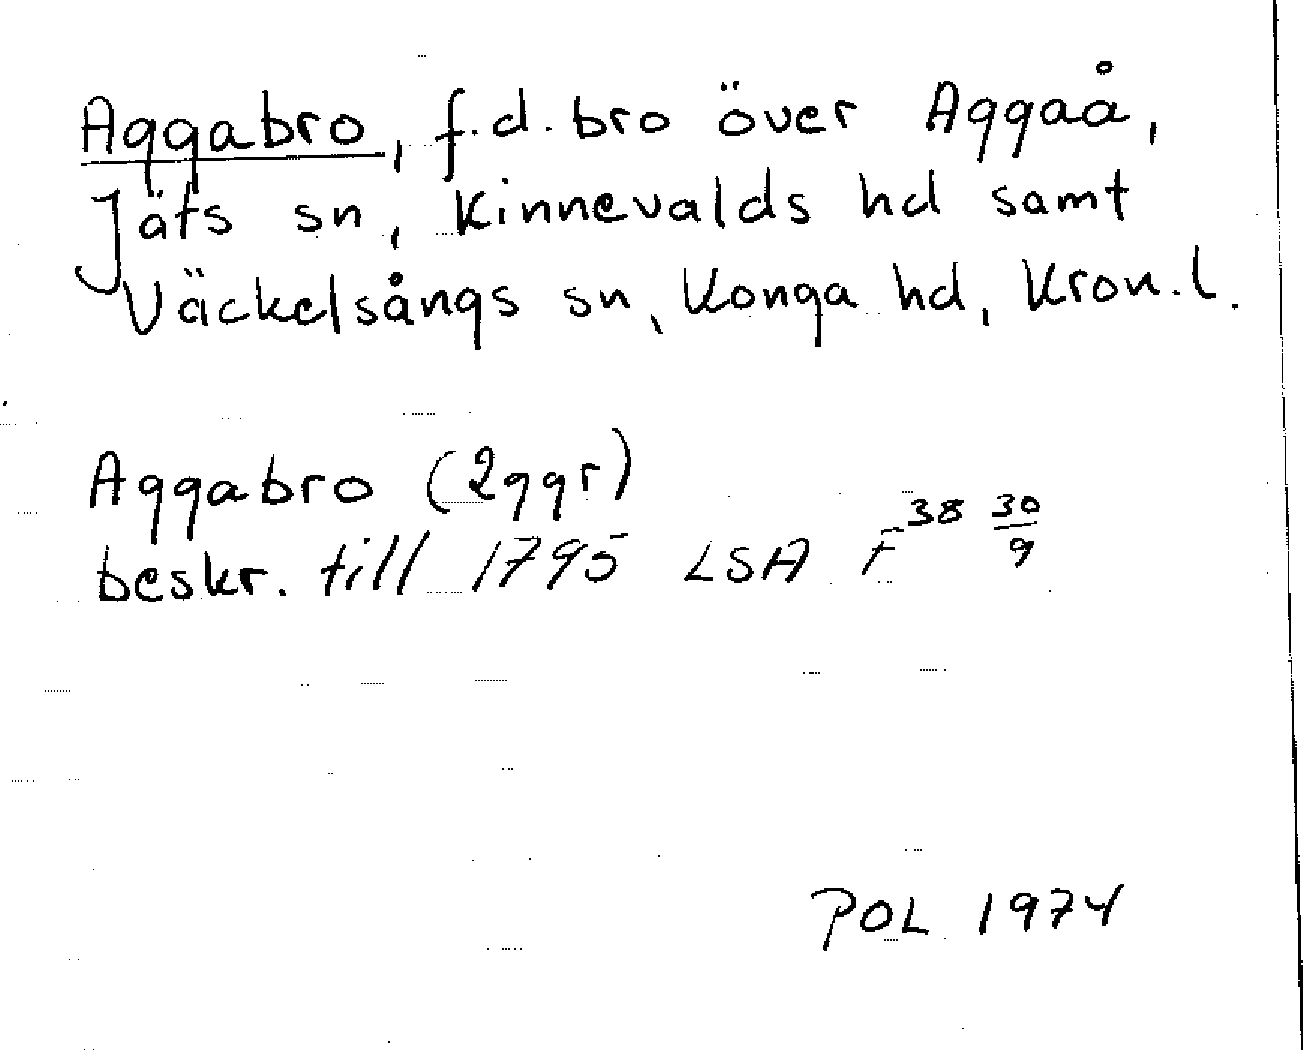 Aggabro, f.d. bro över Aggaå,
Jäts sn, Kinnevalds hd samt
Väckelsångs sn, Konga hd, Kron.l.
Aggabro (2ggr)
beskr. till 1795 LSA F 38 30/9
POL 1974